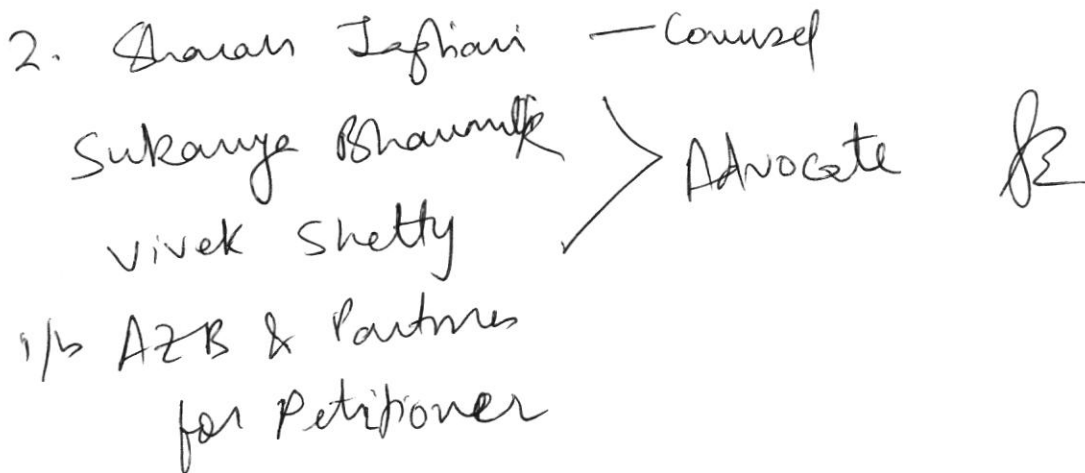 2. Sharan Jagtiani — Counsel
Sukanya Bhaumik
Advocate
Vivek Shetty
i/b AZB & Partners
for Petitioner